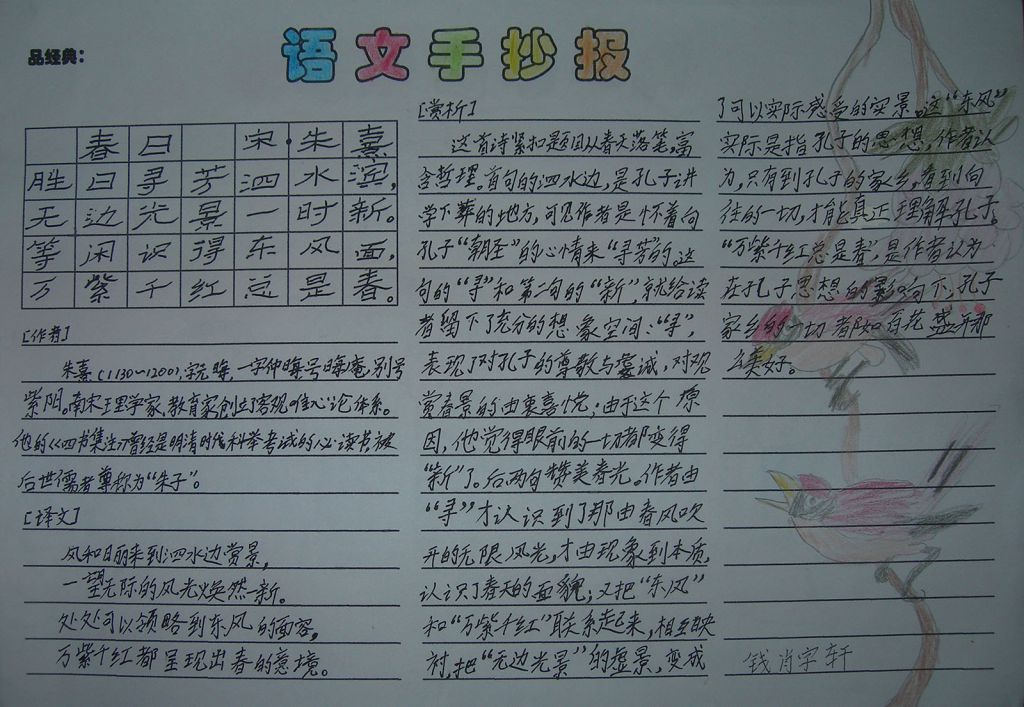 语文手抄报
品经典：
春日 宋·朱熹
胜日寻芳泗水滨，
无边光景一时新。
等闲识得东风面，
万紫千红总是春。
[作者]
朱熹(1130~1200)，字元晦，一字仲晦，号晦庵，别号
紫阳。南宋理学家，教育家创立了客观唯心论体系。
他的《四书集注》曾经是明清时代科举考试的必读书被
后世儒者尊称为“朱子”。
[译文]
风和日丽来到泗水边赏景，
一望无际的风光焕然一新。
处处可以领略到东风的面容，
万紫千红都呈现出春的意境。
[赏析]
这首诗紧扣题目从春天落笔，富
含哲理。首句的泗水边，是孔子讲
学下葬的地方，可见作者是怀着向
孔子“朝圣”的心情来“寻芳”的。这
句的“寻”和第二句的“新”，就给读
者留下了充分的想象空间：“寻”，
表现了对孔子的尊敬与虔诚，对观
赏春景的由衷喜悦；由于这个原
因，他觉得眼前的一切都变得
“新”了。后两句赞美春光。作者由
“寻”才认识到了那由春风吹
开的无限风光，才由现象到本质，
认识了春天的面貌；又把“东风”
和“万紫千红”联系起来，相互映
衬，把“无边光景”的虚景，变成
了可以实际感受的实景。这“东风”
实际是指孔子的思想，作者认
为，只有到孔子的家乡，看到向
往的一切，才能真正理解孔子。
“万紫千红总是春”，是作者认为
在孔子思想的影响下，孔子
家乡的一切都如百花盛开那
么美好。
钱肖宇轩